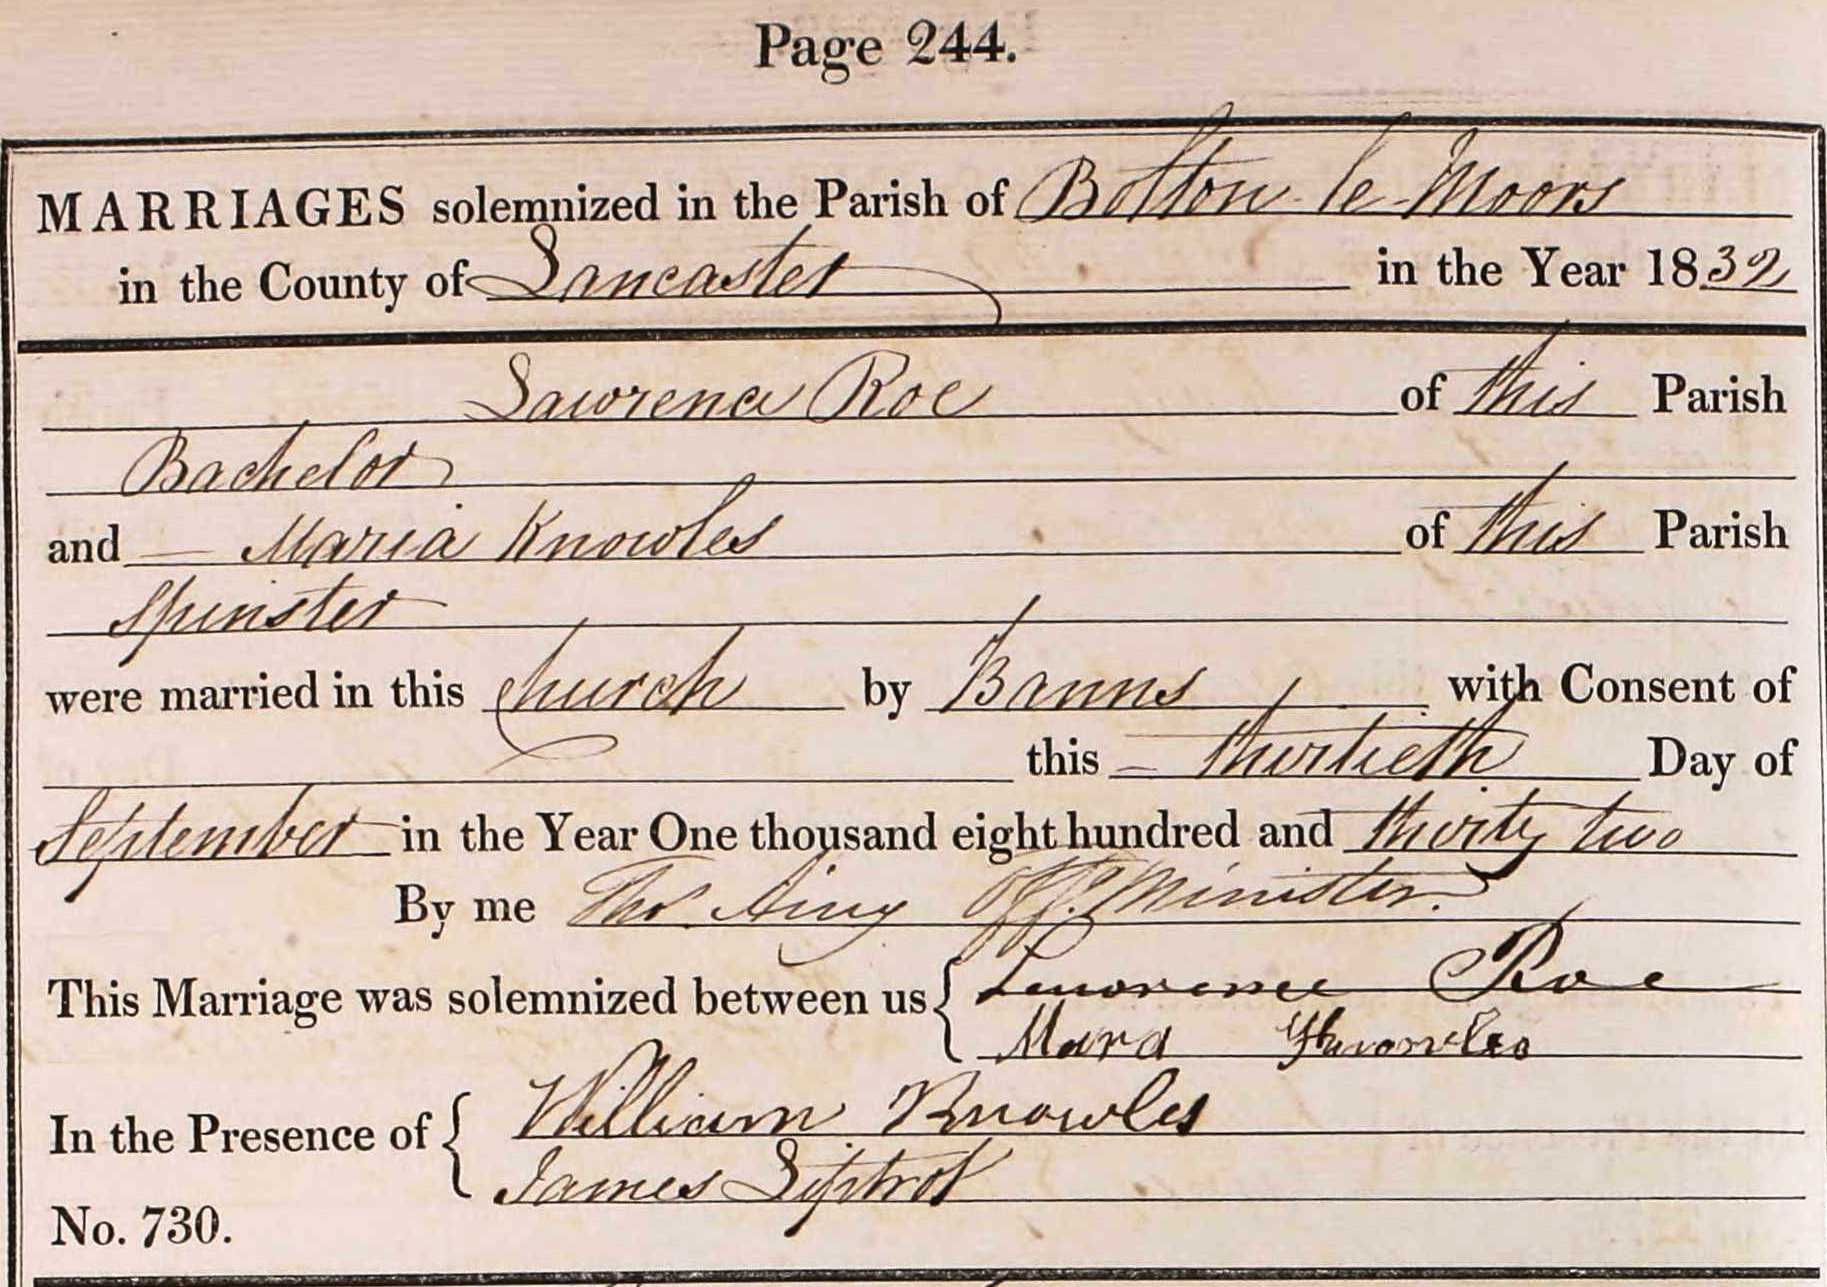 Page 244.
MARRIAGES solemnized in the Parish of Bolton le Moors
in the County of Lancaster in the Year 1832
Lawrence Roe of this Parish
Bachelor
and Maria Knowles of this Parish
Spinster
were married in this Church by Banns with Consent of
this thirtieth Day of
September in the Year One thousand eight hundred and thirty two
By me Thos. Airey Offg. Minister.
This Marriage was solemnized between us Lawrence Roe
Mara Knowles
In the Presence of William Knowles
James Siptrot
No. 730.